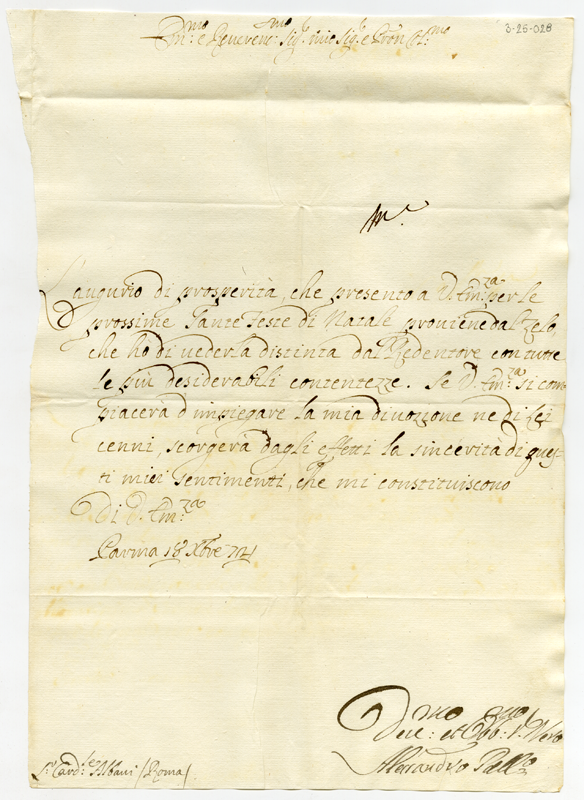 3-25-028
Em:mo e Reverend:mo Sig:r mio Sig:r e Pron Col:mo
L'augurio di prosperità, che presento a V. Em:za per le
prossime Sante Feste di Natale proviene dal zelo,
che ho di vederla distinta dal Redentore con tutte
le più desiderabili contentezze. Se V. Em:za si com-
piacerà d'impiegare la mia divozione ne di lei
cenni, scorgerà dagli effetti la sincerità di ques-
ti miei sentimenti, che mi constituiscono
Di V. Em:za
Parma 18 Xbre
Dev:mo et Obb:mo Servo
Alessandro
S:r Card:le Albani / Roma /